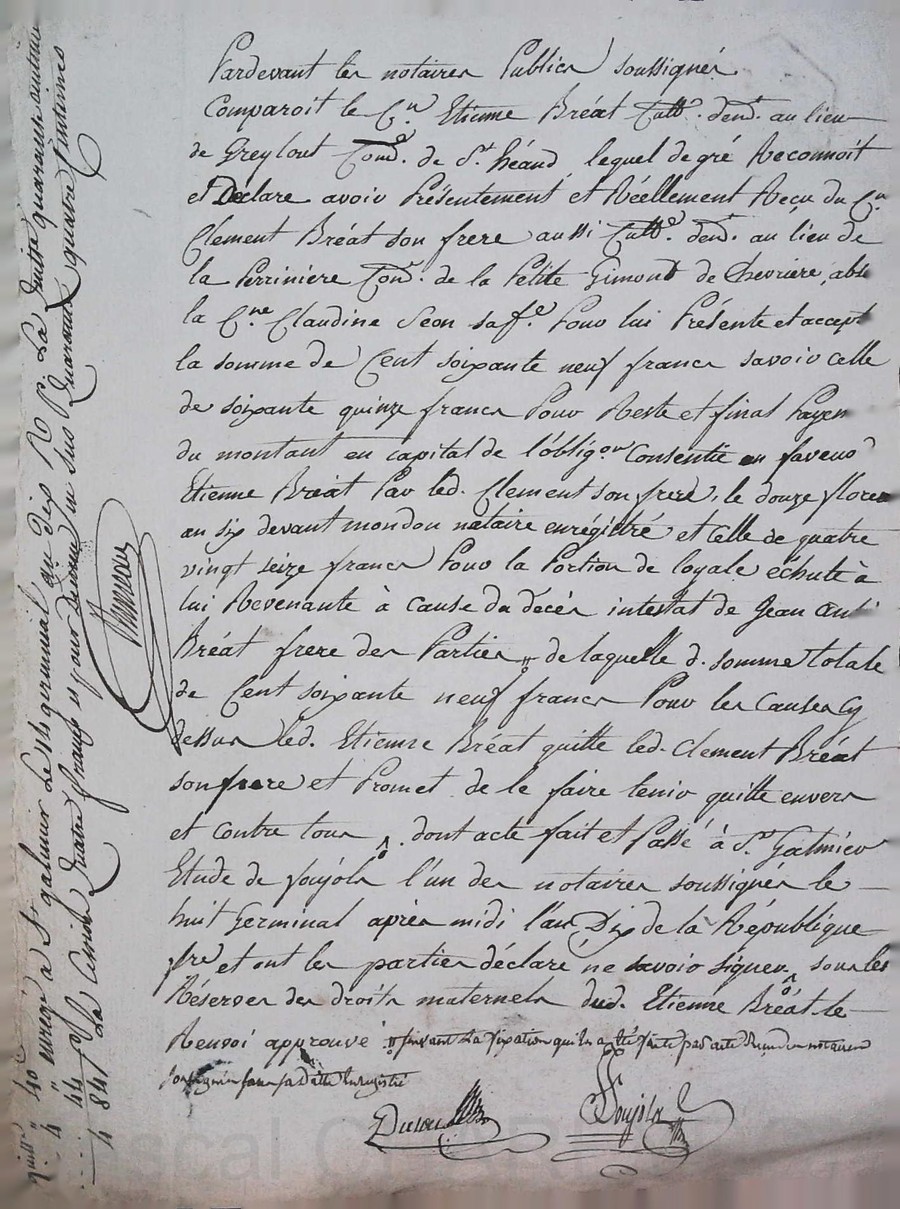 Pardevant les notaires Publics soussignés
Comparoit le Cn. Etienne Bréat Cultr. demt. au lieu
de Greylout Comne. de St. héand lequel de gré Reconnoit
et Déclare avoir Présentement et Réellement Reçu du Cn
Clement Bréat son frere aussi Cultr. demt. au lieu de
la Perriniere Comne. de la Petite Gimond de Chevriere, abse
la Cne. Claudine Seon sa fe. Pour lui Présente et accept
la somme de Cent soixante neuf francs savoir celle
de soixante quinze francs Pour Reste et final Payem
du montant en capital de l'obligon Consentie en faveur
Etienne Bréat Par led. Clement son frere, le douze floreal
an six devant mondon notaire enrégistré et celle de quatre
vingt seize francs Pour la Portion de loyale échute à
lui Revenante à Cause du décés intestat de Jean Anto
Bréat frere des Parties " de laquelle d. somme totale
de Cent soixante neuf francs Pour les Causes Cy
dessus led. Etienne Bréat quitte led. Clement Bréat
son frere et Promet de le faire tenir quitte envers
et contre tous . dont acte fait et Passé à St. Galmier
Etude de Poujols l'un des notaires soussignés le
huit Germinal après midi l'an Dix de la République
fre et ont les parties déclaré ne savoir signer, sous les
Réserves des droits maternels dud. Etienne Bréat le
Renvoi approuvé " suivant la fixation qui en a été faite par acte Reçu un notaires
soussignés sous sa datte Enregistré
Poujols
quitt. 40c enrégé à St galmier le 14 germinal an dix Ro Po La huite quarante
4 " 44
4 84 La Cession quatre francs et pour un sus Quarante quatre Centimes